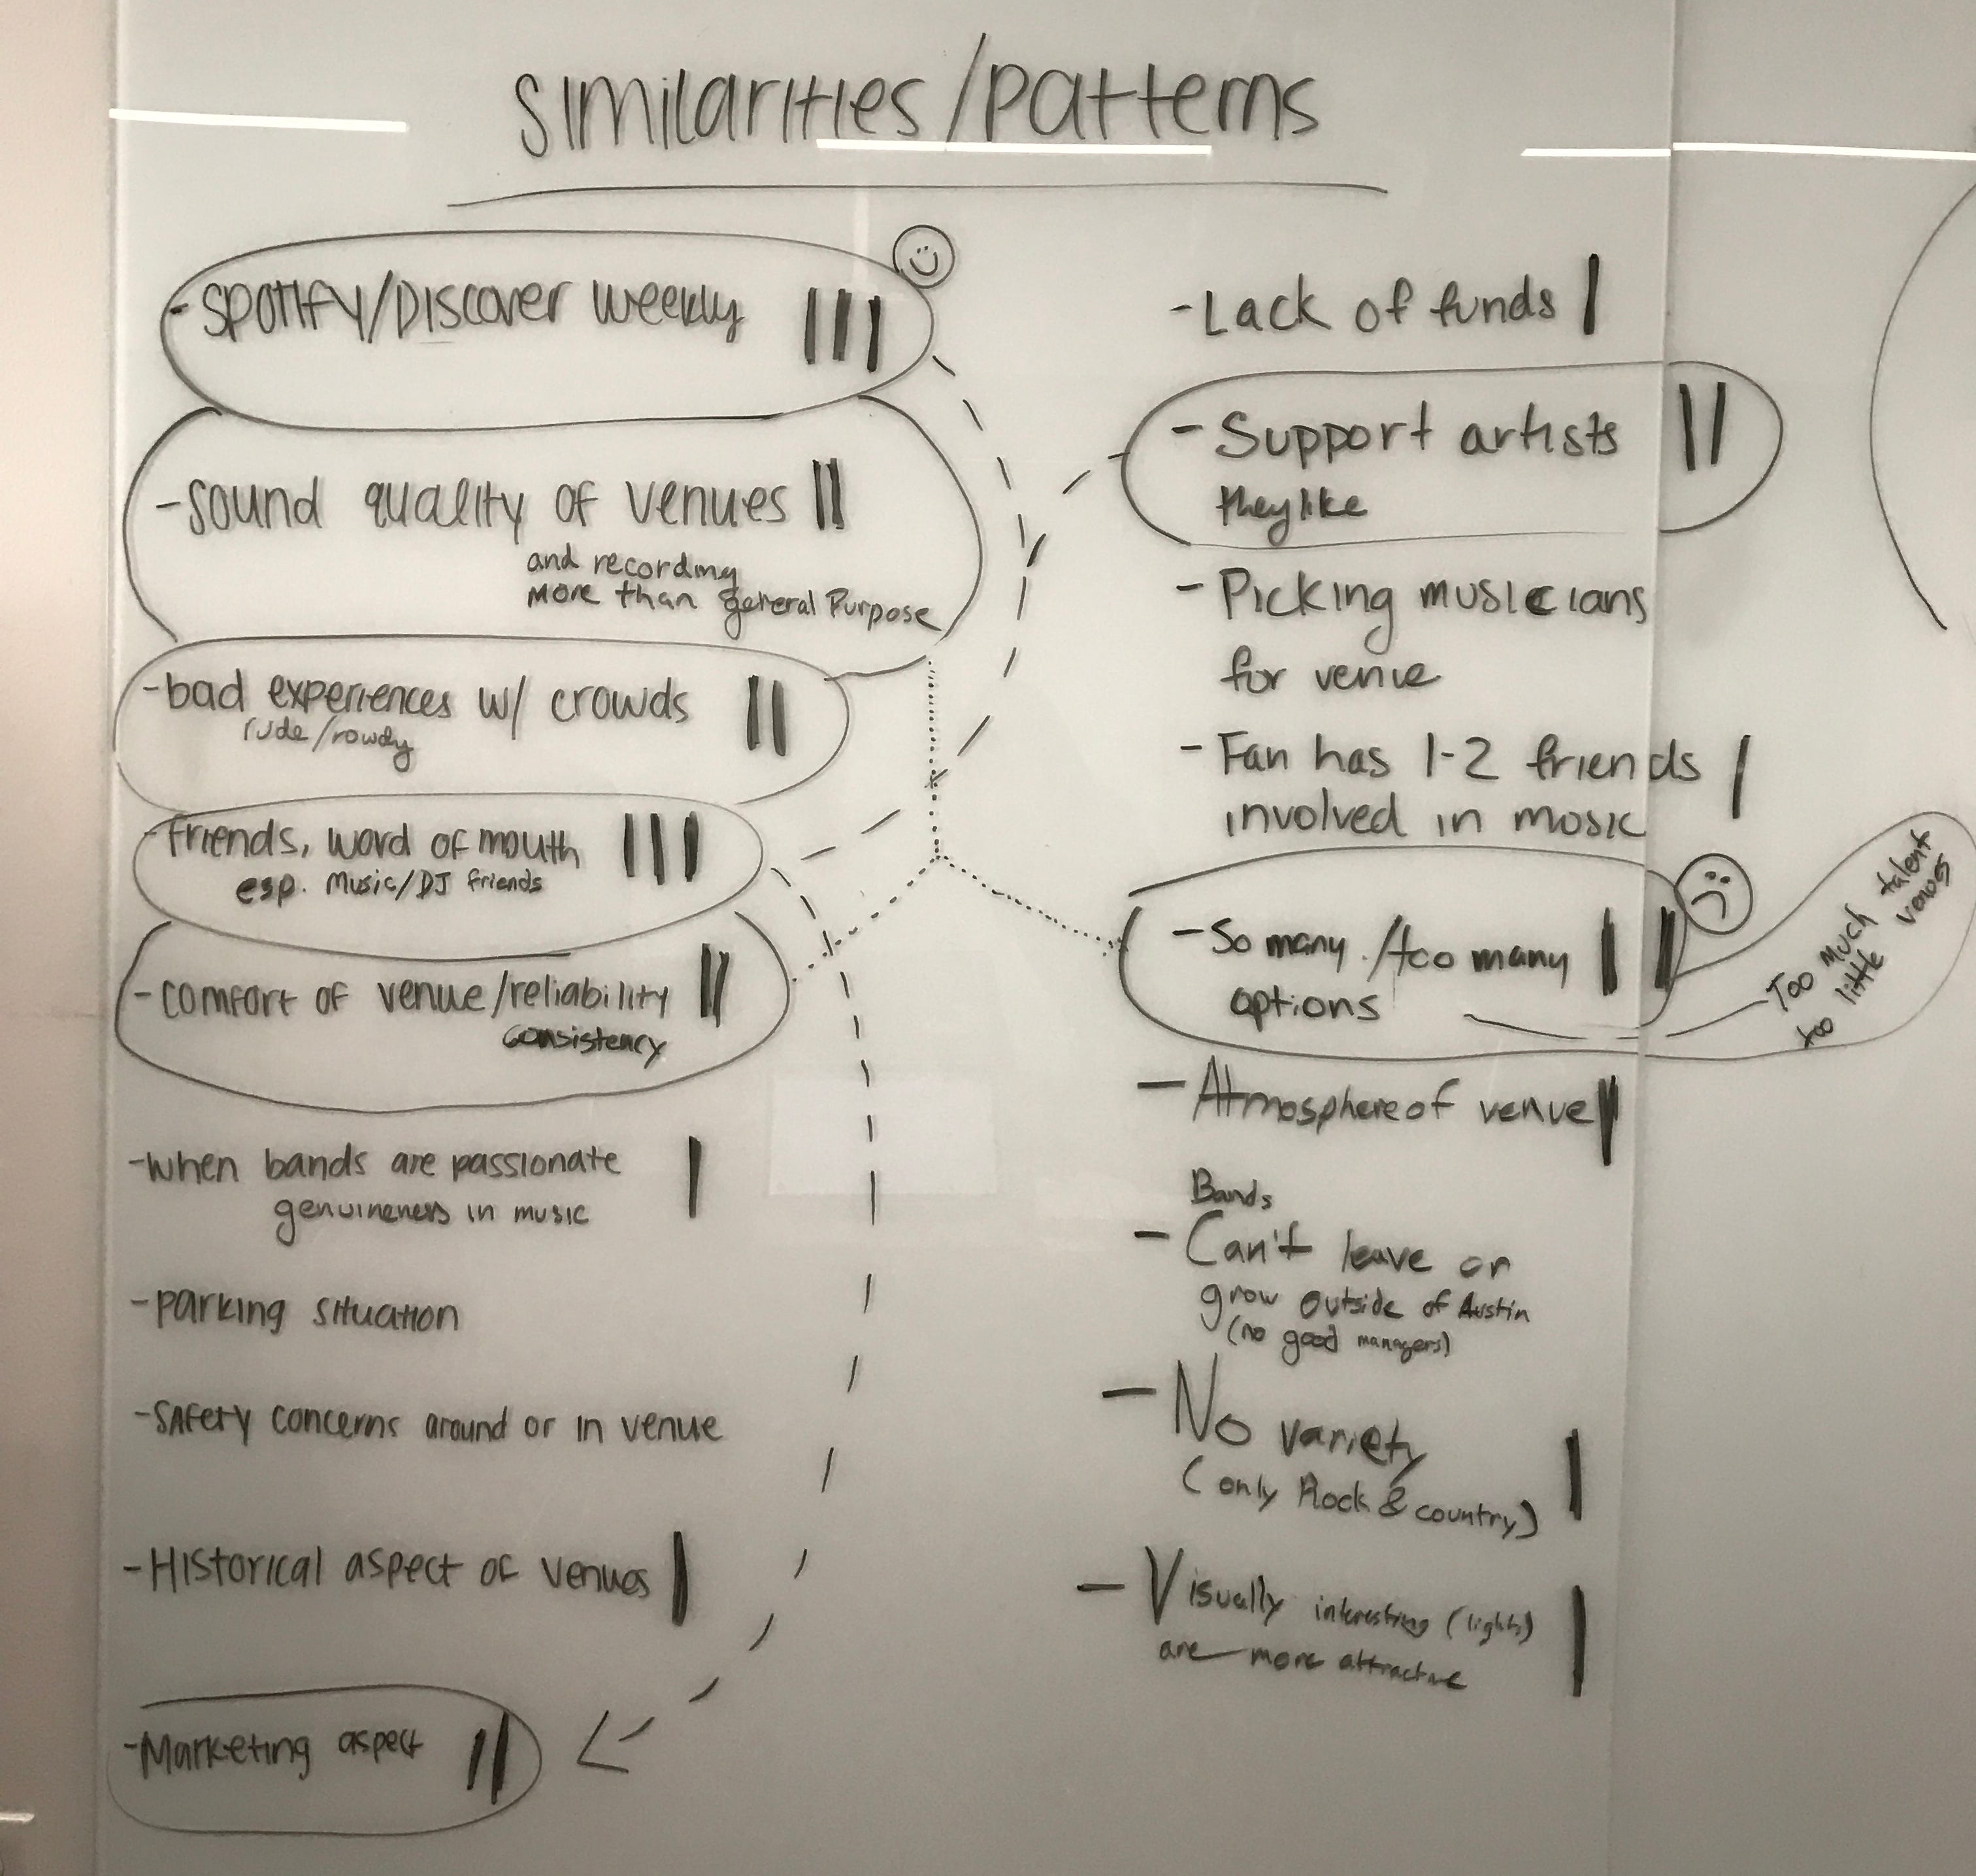 Similarities/Patterns
- Spotify/Discover weekly |||
- Sound quality of venues ||
and recording
more than general purpose
- bad experiences w/ crowds ||
rude/rowdy
- friends, word of mouth |||
esp. Music/DJ friends
- comfort of venue/reliability ||
consistency
- when bands are passionate |
genuineness in music
- parking situation
- Safety concerns around or in venue
- Historical aspect of venues |
- Marketing aspect ||
- Lack of funds |
- Support artists ||
they like
- Picking musicians
for venue
- Fan has 1-2 friends |
involved in music
- So many/too many ||
options
Too much talent
too little venues
- Atmosphere of venue |
Bands
- Can't leave or
grow outside of Austin
(no good managers)
- No variety |
(only Rock & country)
- Visually interesting (lights) |
are more attractive